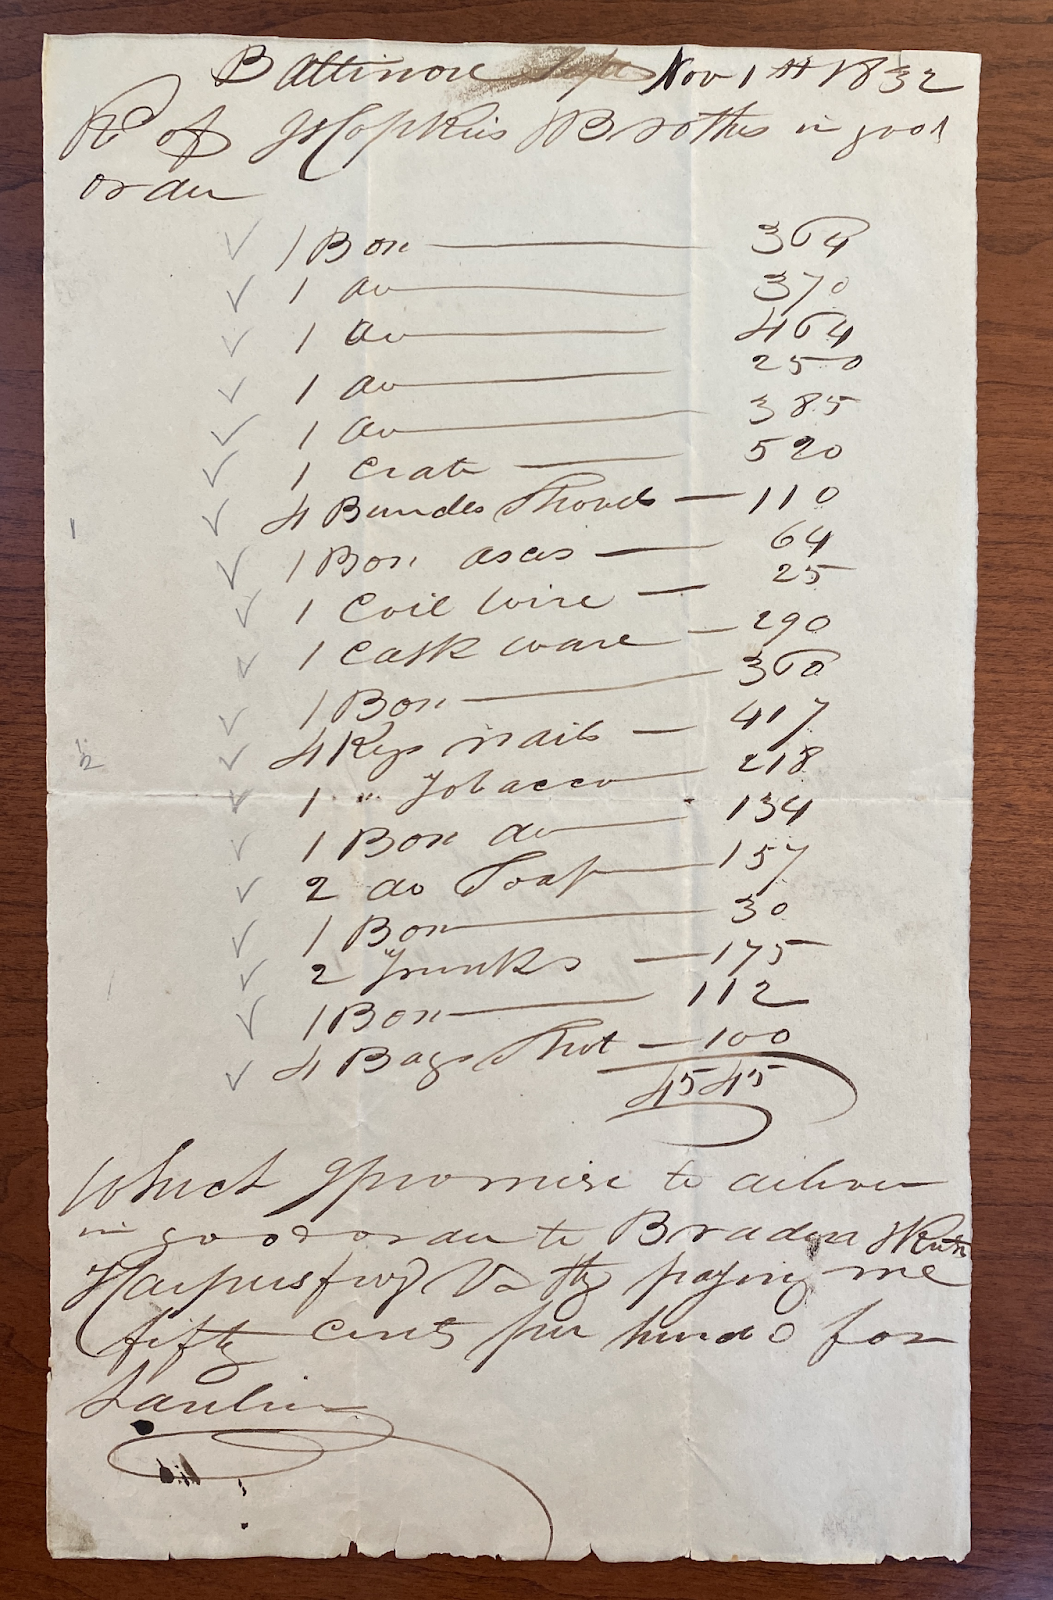 Baltimore Nov 1st 1832
Rd of Hopkins & Brothrs in good
order
1 Box 364
1 do 370
1 do 464
1 do 250
1 do 385
1 Crate 520
4 Bundes Shovels 110
1 Box axes 64
1 Coil wire 25
1 Cask ware 290
1 Box 360
4 Kegs nails 417
1 " Tobacco 218
1 Box do 134
2 do Soap 157
1 Box 30
2 Trunks 175
1 Box 112
4 Bags Shot 100
4545
Which I promise to deliver
in good order to
Harpersferry Va they paying me
fifty cents per hund for
1
2